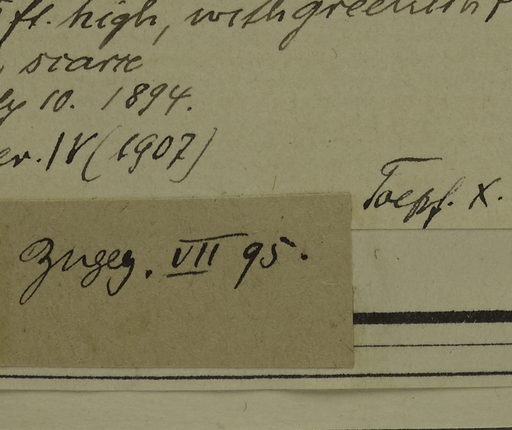 ft. high, with greenish
scarce
10. 1894.
er. IV (1907)
Toepf. X.
Zugeg. VII 95.